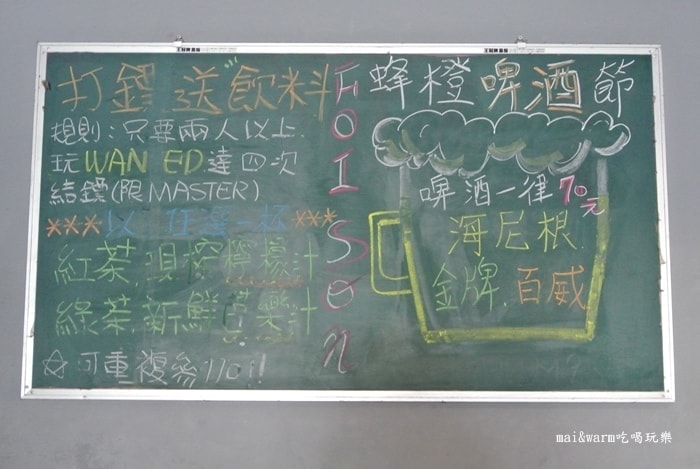 打鏢送飲料
規則:只要兩人以上
玩WANTED達四次
結鏢(限MASTER)
***以下任選一杯***
紅茶.現榨檸檬汁
綠茶.新鮮芭樂汁
☆可重複參加!!
FOISON
蜂橙啤酒節
啤酒一律70元
海尼根.
金牌.百威
mai&warm吃喝玩樂